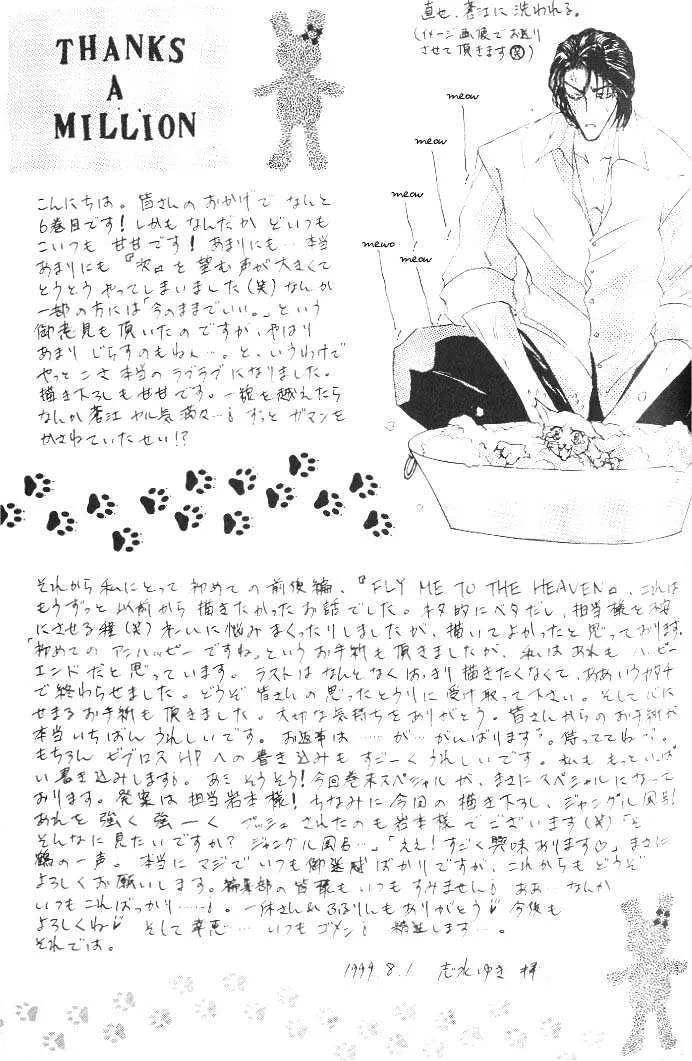 THANKS
A
MILLION
直せ、蒼江に洗われる。
(イメージ画像でお送り
させて頂きます(笑))
meow
meow
meow
meow
mewo
こんにちは。皆さんのおかげで なんと
6巻目です!しかも なんだか どいつも
こいつも 甘甘です! あまりにも…本当
あまりにも『次』を望む声が大きくて
とうとう やってしまいました(笑)なんか
一部の方には「今のままでいい。」という
御意見も頂いたのですが、やはり
あまり じらすのもねぇ…。と、いうわけで
やっとこさ本当のラブラブになりました。
描き下ろしも甘甘です。一線を越えたら
なんか蒼江 ヤル気満々…! ずっと ガマンを
かさねていたせい!?
それから 私にとって 初めての前後編、『FLY ME TO THE HEAVEN』、これは
もうずっと以前から描きたかったお話でした。ネタ的にベタだし、担当様を不安
にさせる程(笑)大いに悩みまくったりしましたが、描いてよかったと思っております。
「初めての アンハッピーですね」というお手紙も頂きましたが、私はあれも ハッピー
エンドだと思っています。ラストは なんとなくはっきり描きたくなくて、ああいうカタチ
で終わらせました。どうぞ皆さんの思ったとうりに受け取って下さい。そして心に
せまるお手紙も頂きました。大切な気持ちをありがとう。皆さんからのお手紙が
本当いちばん うれしいです。お返事は……が…がんばります。待っててね…。
もちろん ビブロスHPへの書き込みも すごーく うれしいです。私も もっといっぱ
い書き込みします。あ、そうそう!今回巻末スペシャルが、まさにスペシャルになって
おります。発案は担当岩本様!ちなみに今回の描き下ろし、ジャングル風呂!
あれを強く強ーく プッシュされたのも岩本様でございます(笑)「と
そんなに見たいですか? ジャングル風呂…」「ええ!すごく興味あります♡」まさに
鶴の一声。本当にマジでいつも御迷惑ばかりですが、これからもどうぞ
よろしくお願いします。編集部の皆様もいつもすみません! ああ…なんか
いつもこればっかり……!。一休さん&るりんもありがとう♡ 今後も
よろしくね♡ そして幸恵… いつもゴメン! 精進します…。
それでは。
1999.8.1 志水ゆき 拝